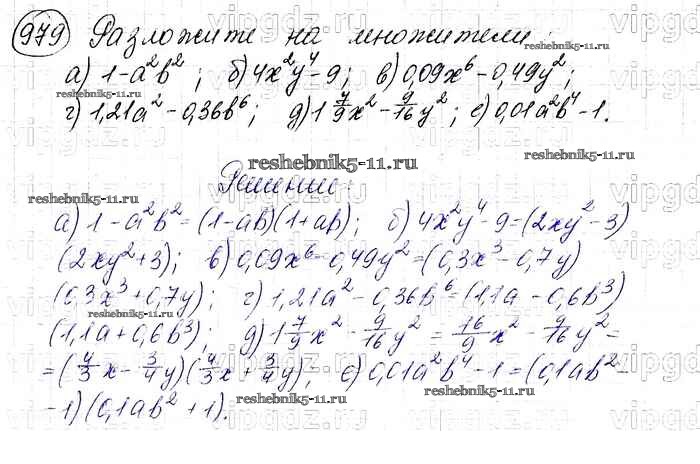 979 Разложите на множители:
а) 1-a²b²; б) 4x²y⁴-9; в) 0,09x⁶-0,49y²;
г) 1,21a²-0,36b⁶; д) 1 7/9 x² - 9/16 y²; е) 0,01a²b⁴-1.
reshebnik5-11.ru
Решение:
а) 1-a²b²=(1-ab)(1+ab); б) 4x²y⁴-9=(2xy²-3)
(2xy²+3); в) 0,09x⁶-0,49y²=(0,3x³-0,7y)
(0,3x³+0,7y); г) 1,21a²-0,36b⁶=(1,1a-0,6b³)
(1,1a+0,6b³); д) 1 7/9 x² - 9/16 y² = 16/9 x² - 9/16 y² =
=(4/3 x - 3/4 y)(4/3 x + 3/4 y); е) 0,01a²b⁴-1=(0,1ab²-
-1)(0,1ab²+1).
reshebnik5-11.ru
vipgdz.ru